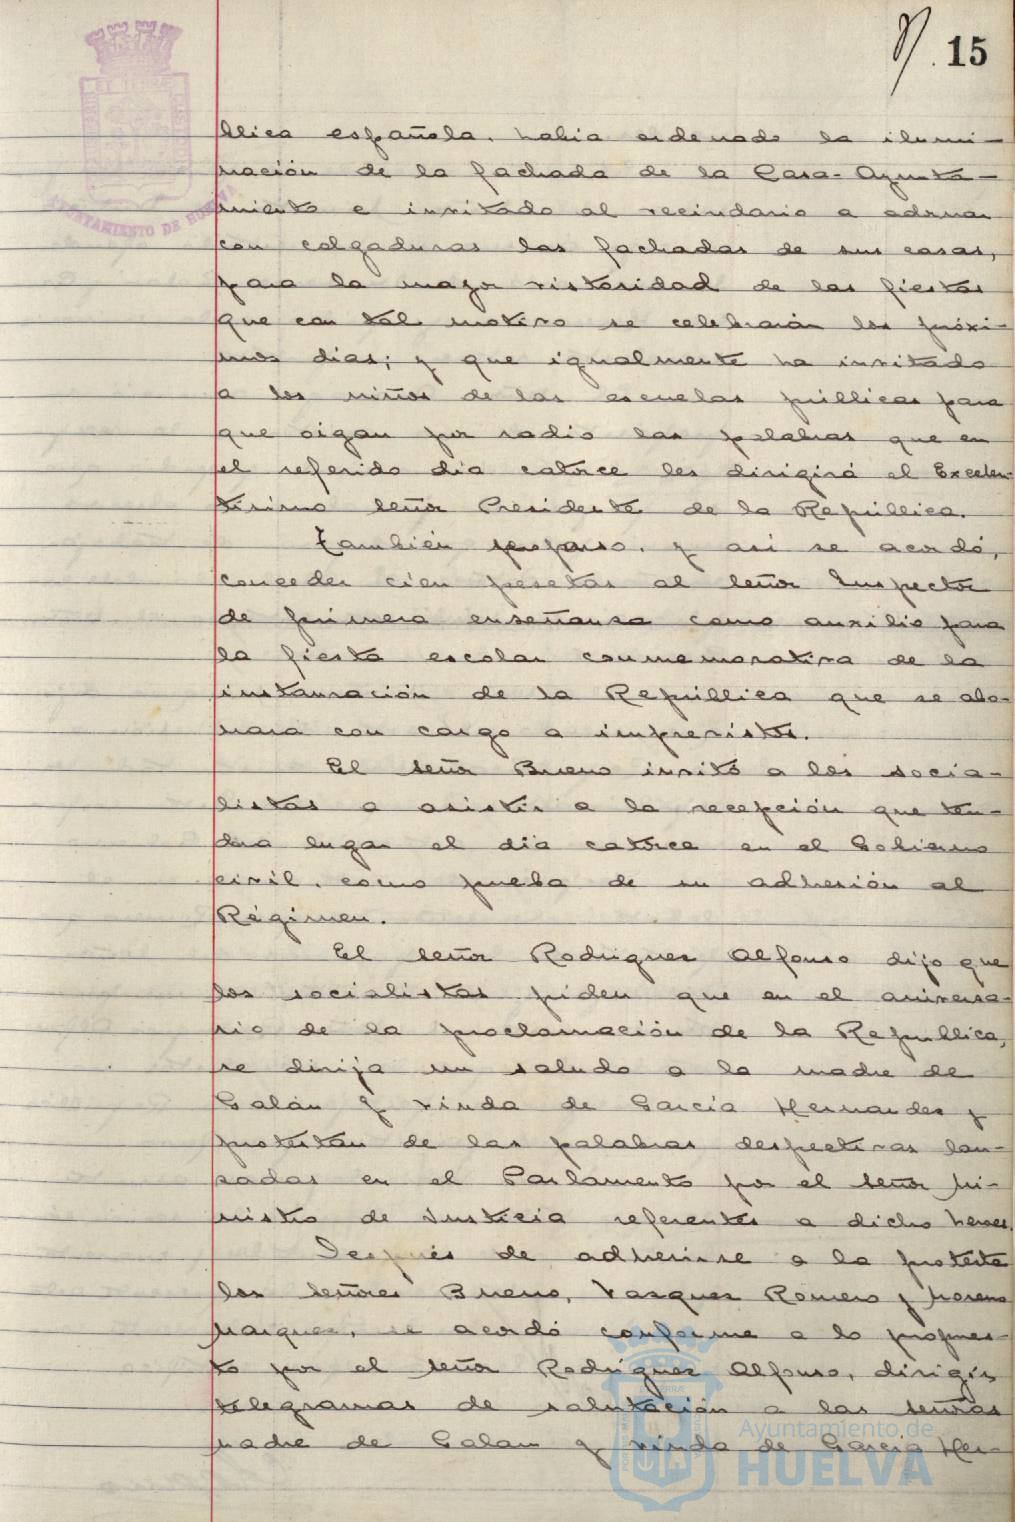 15
AYUNTAMIENTO DE HUELVA
blica española, habia ordenado la ilumi-
nación de la fachada de la Casa-Ayunta-
miento e invitado al vecindario a adornar
con colgaduras las fachadas de sus casas,
para la mayor vistosidad de las fiestas
que con tal motivo se celebrarán los próxi-
mos dias; y que igualmente ha invitado
a los niños de las escuelas públicas para
que oigan por radio las palabras que en
el referido dia catorce les dirigirá el Excelen-
tisimo Señor Presidente de la República.
También propuso, y asi se acordó,
conceder cien pesetas al Señor Inspector
de primera enseñansa como auxilio para
la fiesta escolar conmemorativa de la
instauración de la República que se abo-
nara con cargo a imprevistos.
El Señor Bueno invitó a los socia-
listas a asistir a la recepción que ten-
dra lugar el dia catorce en el Gobierno
civil, como prueba de su adhesión al
Régimen.
El Señor Rodriguez Alfonso dijo que
los socialistas piden que en el aniversa-
rio de la proclamación de la República,
se dirija un saludo a la madre de
Galán y viuda de Garcia Hernandez y
protestan de las palabras despectivas lan-
zadas en el Parlamento por el Señor Mi-
nistro de Justicia referentes a dicho heroes.
Después de adherirse a la protesta
los Señores Bueno, Vasquez Romero y Moreno
Marquez, se acordó conforme a lo propues-
to por el Señor Rodriguez Alfonso, dirigir
telegramas de salutación a las señoras
madre de Galan y viuda de Garcia Her-
Ayuntamiento de
HUELVA